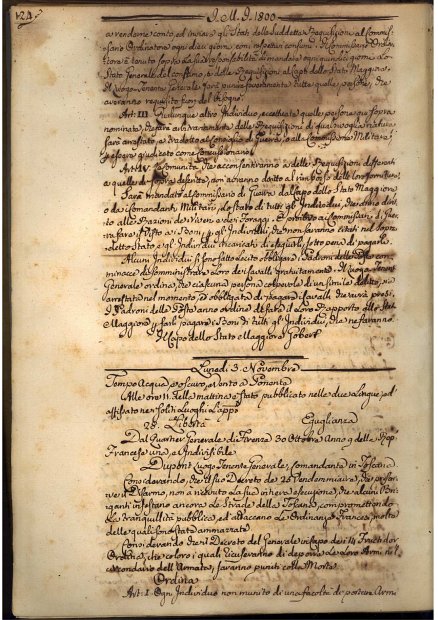 124.
I. M. I. 1800
a rendere conto, ed inviare gli Stati delle suddette Requisizioni al Commis=
sario Ordinatore ogni dieci giorni con i rispettivi consumi. Il Commissario Ordina=
tore è tenuto sopra la sua responsabilità di mandare ogni giorno lo
Stato Generale del consumo, e delle Requisizioni al Capo dello Stato Maggiore.
Il Luogo Tenente Generale farà pure tutte quelle, che
avranno requisito fuor del bisogno.
Art: III. Qualunque altro Individuo, eccettuate quelle persone qui sopra
nominate, che farà delle Requisizioni di qualsivoglia natura
sarà arrestato, e tradotto al Consiglio di Guerra, o alla Commissione Militare
per essere giudicato come Concussionario.
Art: IV. Le Comunità che acconsentiranno a delle Requisizioni differenti
a quelle di sopra descritte, non avranno diritto al rimborso delle loro forniture.
Sarà mandato al Commissario di Guerra dal Capo dello Stato Maggiore
o da' Comandanti Militari, lo stato di tutti gli Individui, che hanno dirit=
to alle Razioni de' Viveri, e dei Foraggi. È proibito ai Commissarj di Guer=
ra fare il Visto a i Boni per gli Individui, che non saranno citati nel sopra=
detto Stato, e gli Individui incaricati di eseguirli, sotto pena di pagarli.
Alcuni Individui si sono fatto lecito obbligare i Padroni delle Poste con
minacce di somministrare loro dei Cavalli gratuitamente. Il Luogo Tenente
Generale ordina, che ciascuna persona colpevole di un simile delitto, sia
arrestata nel momento, e obbligata di pagare i Cavalli che avrà presi.
I Padroni delle Poste hanno ordine di fare il loro Rapporto allo Stato
Maggiore per farli pagare i Boni di tutti gli Individui, che ne faranno.
Il Capo dello Stato Maggiore Gobert
Lunedì 3. Novembre
Tempo Acqua, e oscuro, e vento a Ponente
Alle ore 11. della mattina è stato pubblicato nelle due Lingue, ed
affissato ne' soliti Luoghi l'appo
25. Libertà Eguglianza
Dal Quartier Generale di Firenze 30 Ottobre Anno 9 della Rep.
Francese una, e Indivisibile
Dupont Luogo Tenente Generale, Comandante in Toscana
Considerando, che il suo Decreto de' 25 Vendemmiaire, che prescri=
ve il Disarmo, non ha ricevuto la sua intiera esecuzione, che alcuni Bri=
ganti infestano ancora le Strade della Toscana, compromettendo
la Tranquillità pubblica, ed attaccano le Ordinanze Francesi, molte
delle quali sono state ammazzate
Considerando che il Decreto del Generale in Capo dei 11 Fructidor
Ordina, che coloro i quali ricuseranno di deporre le loro Armi nel
circondario dell'Armata, saranno puniti colla Morte.
Ordina
Art: I. Ogni Individuo non munito di una facoltà di portare Armi